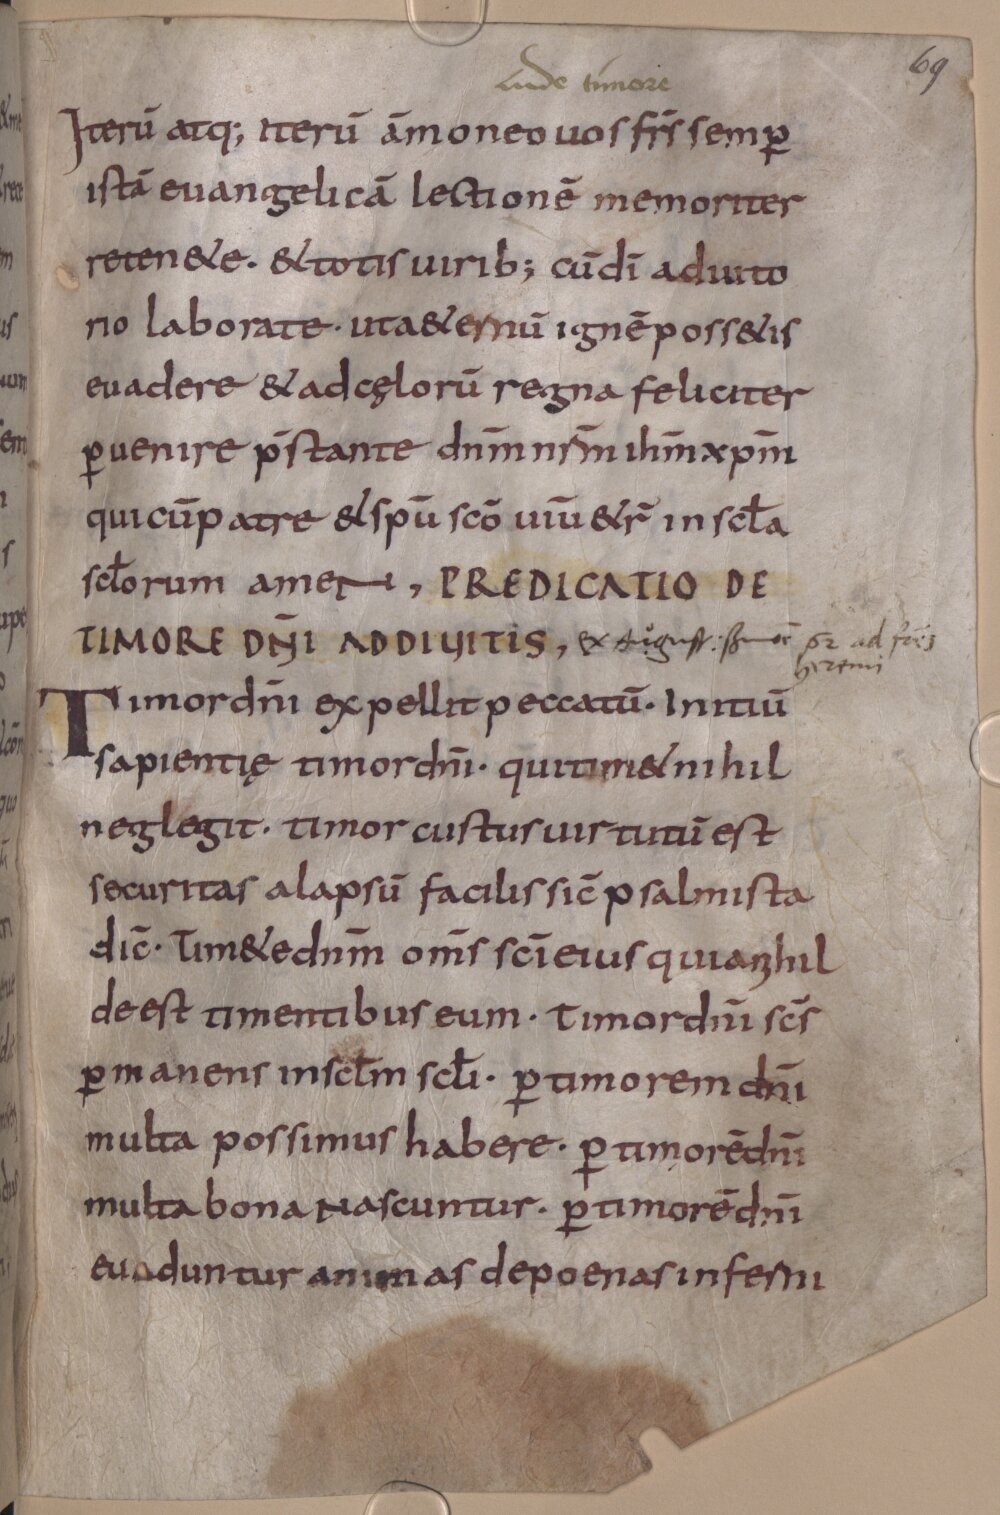 de timore
69
Iterū atq; iterū āmoneo uos fr̄s semꝑ
istā euangelicā lectionē memoriter
reten&e. & totis uirib; cū dī adiuto
rio laborate. uta&ernū ignē poss&is
euadere & ad cęlorū regna feliciter
ꝑuenire p̄stante dnm̄ nrm̄ ihm̄ xpm̄
qui cū patre & spū scō uiu̅ &r̄ in scła
scłorum amen, PREDICATIO DE
TIMORE DN̄I AD DIUITIS, ex August: ad frēs
heremi
Timor dn̄i expellit peccatū. Initiū
sapientię timor dn̄i. qui tim& nihil
neglegit. timor custus uirtutū est
securitas alapsū facilis sic̄ psalmista
dic̄. Tim&e dnm̄ om̄s scī eius quia nihil
deest timentibus eum. Timor dn̄i scs̄
ꝑmanens in scłm scłi. ꝑ timorem dn̄i
multa possimus habere. ꝑ timorē dn̄i
multa bona nascuntur. ꝑ timorē dn̄i
euaduntur animas de poenas inferni